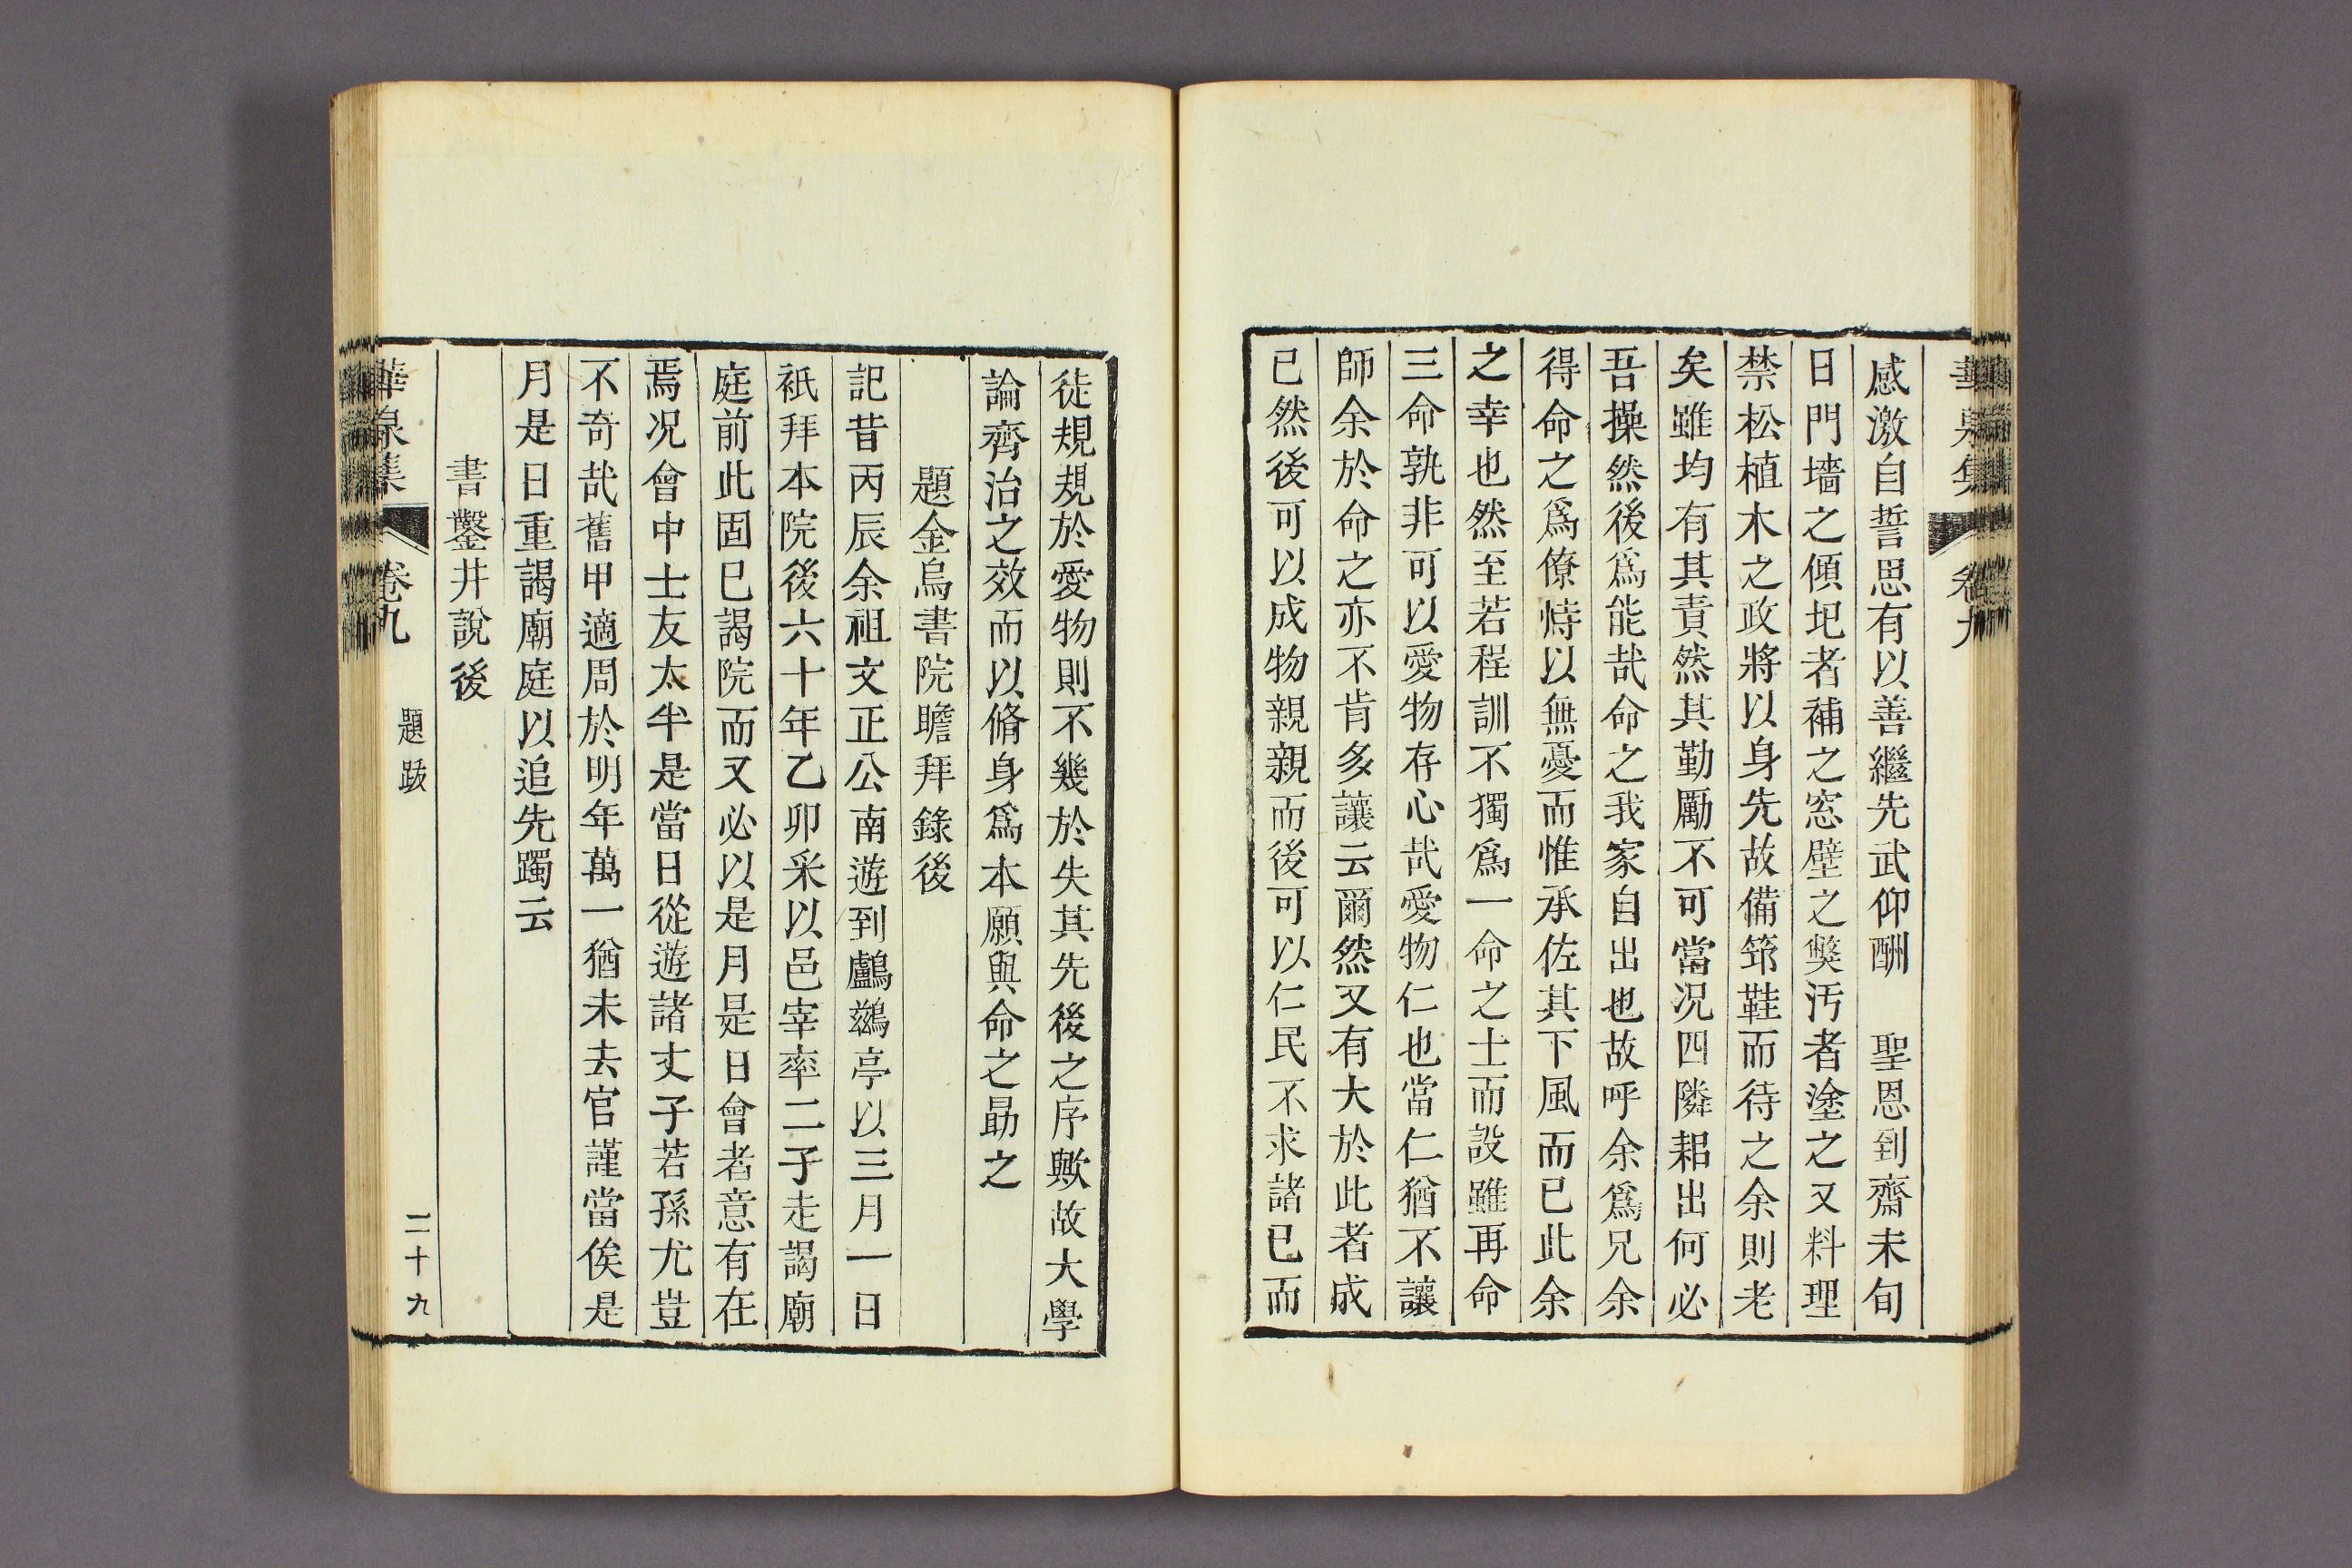 華泉集 卷九
感激自誓思有以善繼先武仰酬　聖恩到齋未旬
日門墻之傾圯者補之窓壁之獘汚者塗之又料理
禁松植木之政將以身先故備筇鞋而待之余則老
矣雖均有其責然其勤勵不可當况四隣耜出何必
吾操然後爲能哉命之我家自出也故呼余爲兄余
得命之爲僚恃以無憂而惟承佐其下風而已此余
之幸也然至若程訓不獨爲一命之士而設雖再命
三命孰非可以愛物存心哉愛物仁也當仁猶不讓
師余於命之亦不肯多讓云爾然又有大於此者成
已然後可以成物親親而後可以仁民不求諸已而
徒規規於愛物則不幾於失其先後之序歟故大學
論齊治之效而以脩身爲本願與命之勗之
題金烏書院瞻拜錄後
記昔丙辰余祖文正公南遊到鸕鶿亭以三月一日
祇拜本院後六十年乙卯釆以邑宰率二子走謁廟
庭前此固巳謁院而又必以是月是日會者意有在
焉况會中士友太半是當日從遊諸丈子若孫尤豈
不奇哉舊甲適周於明年萬一猶未去官謹當俟是
月是日重謁廟庭以追先躅云
書鑿井說後
華泉集 卷九 題跋 二十九